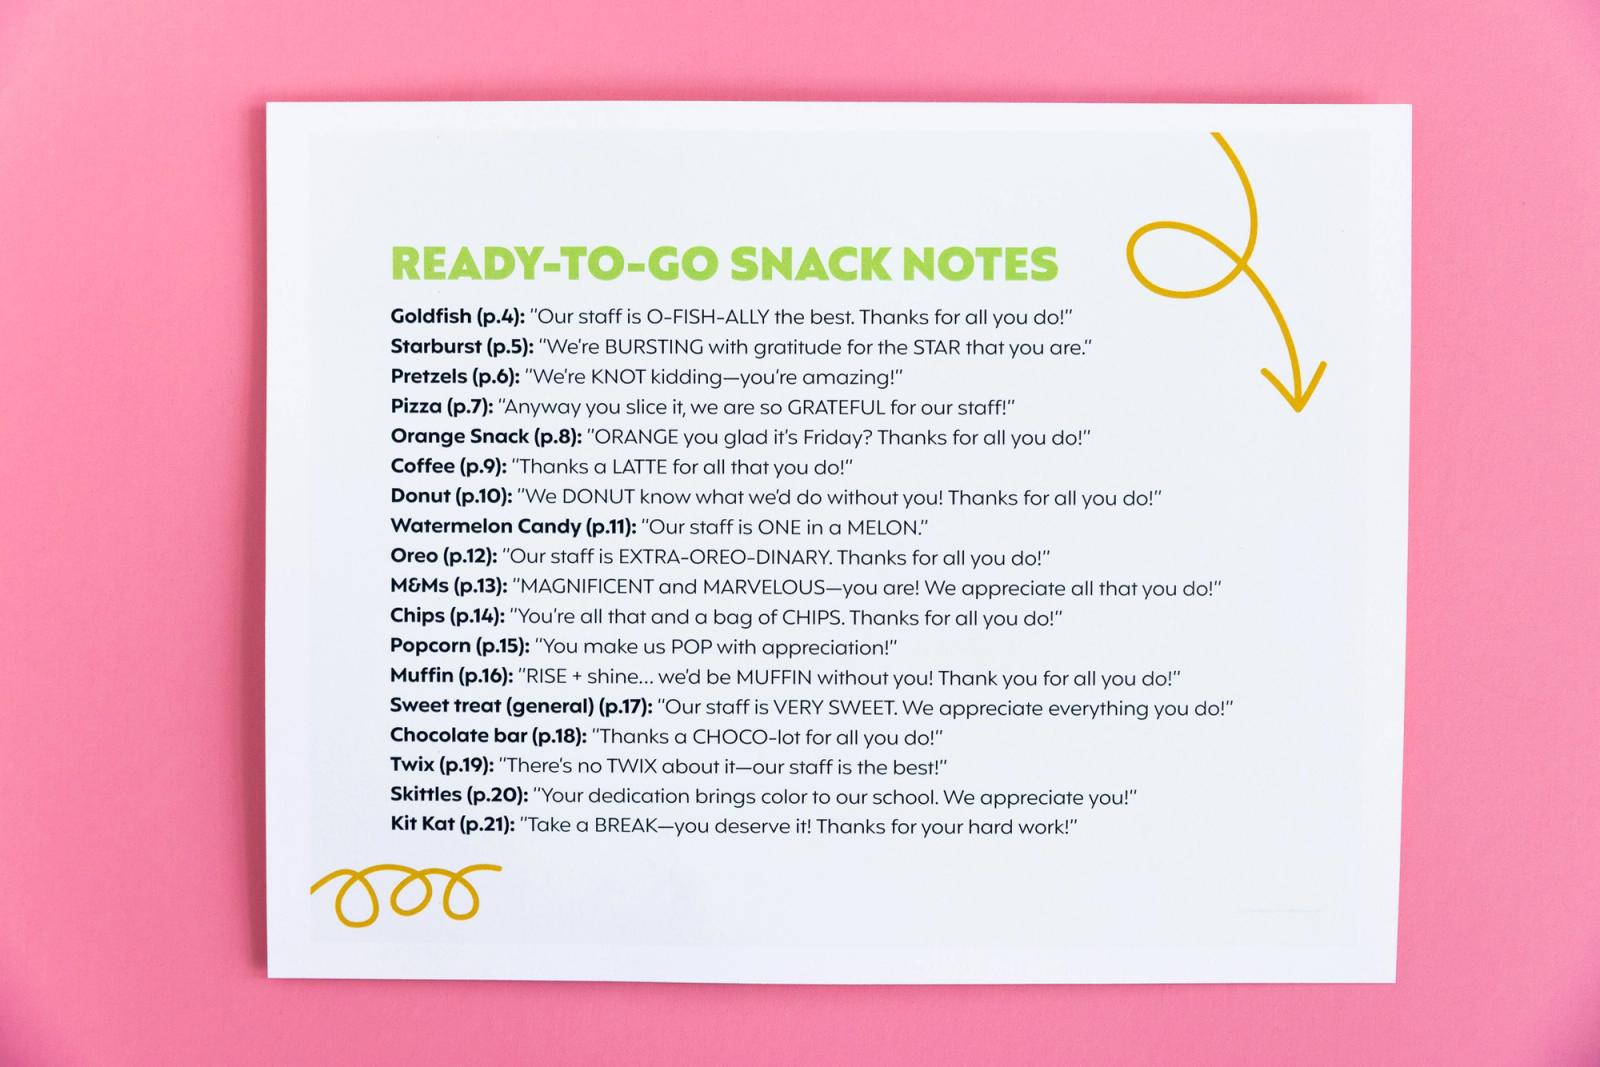 READY-TO-GO SNACK NOTES
Goldfish (p.4): "Our staff is O-FISH-ALLY the best. Thanks for all you do!"
Starburst (p.5): "We're BURSTING with gratitude for the STAR that you are."
Pretzels (p.6): "We're KNOT kidding—you're amazing!"
Pizza (p.7): "Anyway you slice it, we are so GRATEFUL for our staff!"
Orange Snack (p.8): "ORANGE you glad it's Friday? Thanks for all you do!"
Coffee (p.9): "Thanks a LATTE for all that you do!"
Donut (p.10): "We DONUT know what we'd do without you! Thanks for all you do!"
Watermelon Candy (p.11): "Our staff is ONE in a MELON."
Oreo (p.12): "Our staff is EXTRA-OREO-DINARY. Thanks for all you do!"
M&Ms (p.13): "MAGNIFICENT and MARVELOUS—you are! We appreciate all that you do!"
Chips (p.14): "You're all that and a bag of CHIPS. Thanks for all you do!"
Popcorn (p.15): "You make us POP with appreciation!"
Muffin (p.16): "RISE + shine... we'd be MUFFIN without you! Thank you for all you do!"
Sweet treat (general) (p.17): "Our staff is VERY SWEET. We appreciate everything you do!"
Chocolate bar (p.18): "Thanks a CHOCO-lot for all you do!"
Twix (p.19): "There's no TWIX about it—our staff is the best!"
Skittles (p.20): "Your dedication brings color to our school. We appreciate you!"
Kit Kat (p.21): "Take a BREAK—you deserve it! Thanks for your hard work!"